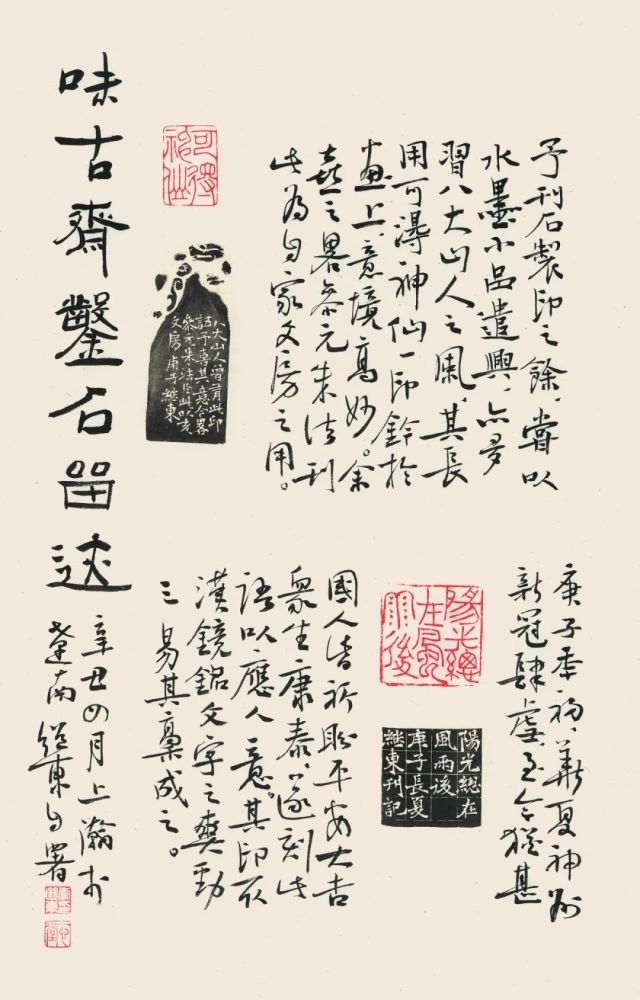 予刊石製印之餘，嘗以
水墨小品遣興、亦多
習八大山人之風，其長
用可得神仙一印鈐於
畫上、意境高妙。余
喜之畧參元朱法刊
此為自家文房之用。
可得
神仙
八大山人曾有此印
語予喜其意合畧
參元朱法作此以充
文房庚子繼東
庚子季初，華夏神州
新冠肆虐、至今猶甚
陽光總
在風
雨後
陽光總在
風雨後
庚子長夏
繼東刊記
國人皆祈盼平安大吉
衆生康泰、遂刻此
語以應人意。其印取
漢鏡銘文字之爽勁
三易其稾成之。
味古齋鑿石留迹
辛丑四月上瀚於
遼南繼東自署